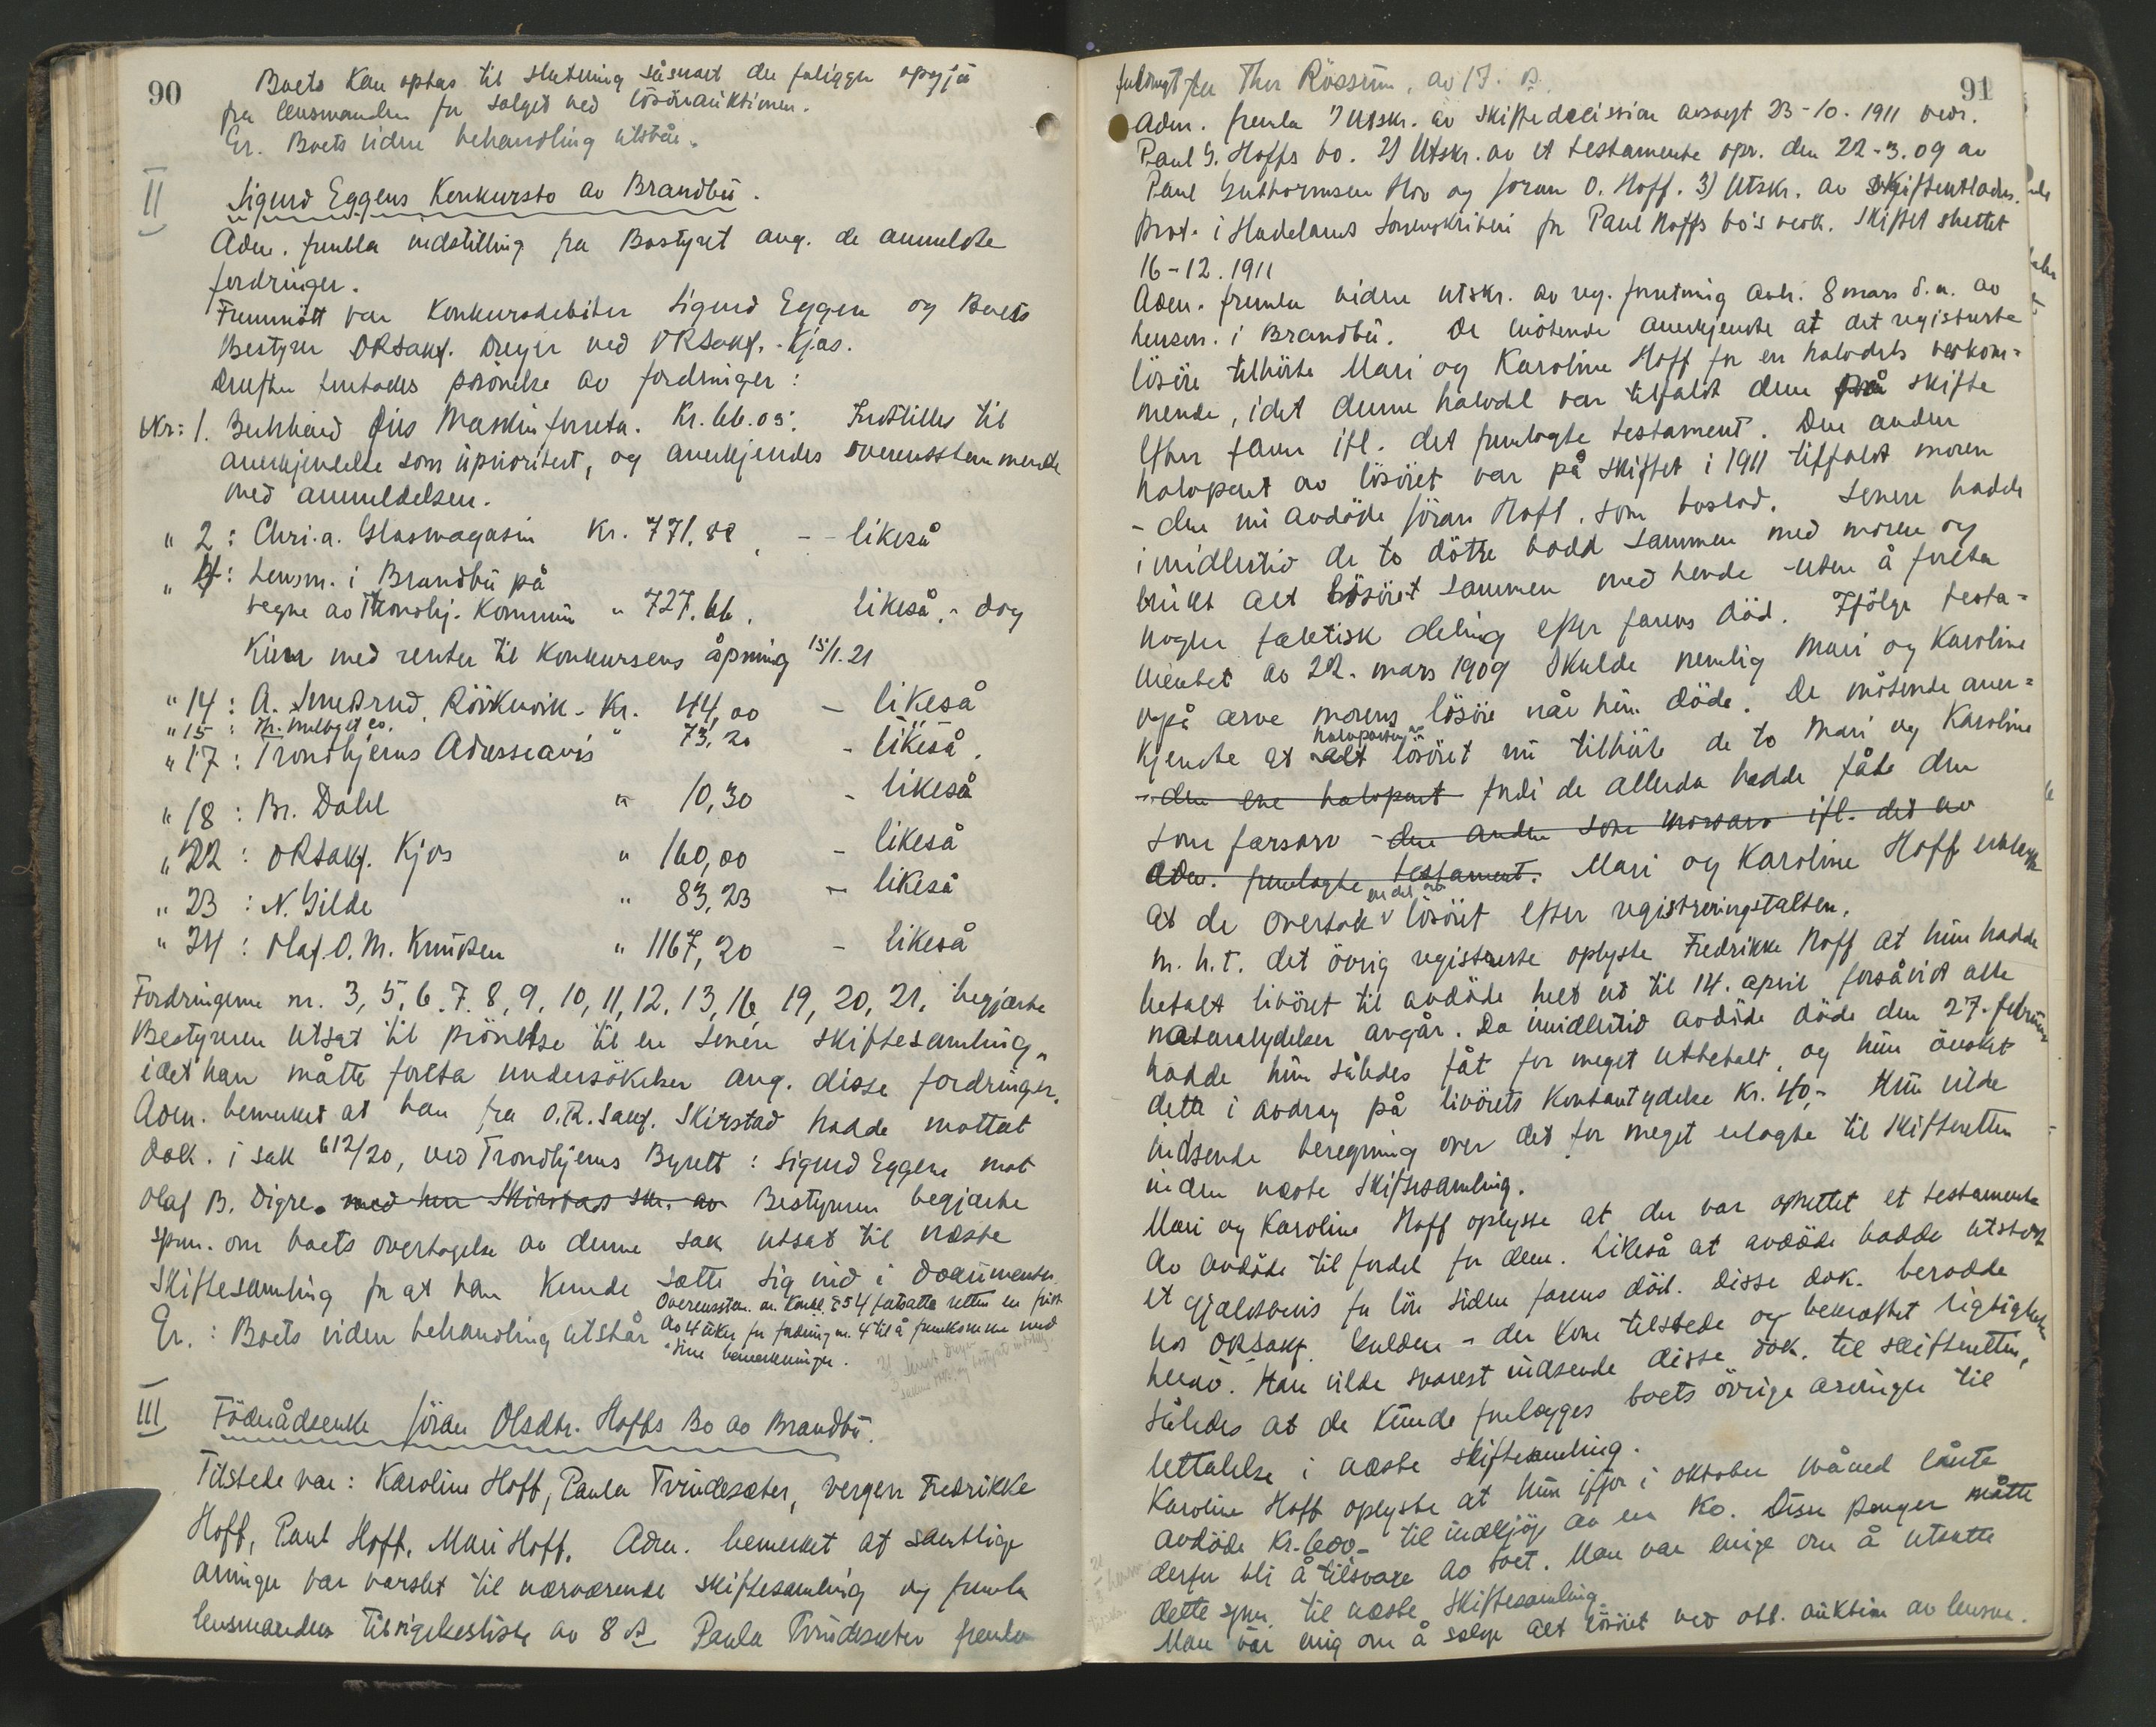 90
Boets kan optas til slutning såsnart der foligger opgjø
fra lensmanden for salget ved lösöreauktionen.
Er. Boets videre behandling utstår.
II
Sigurd Eggens Konkursbo av Brandbu.
Adm. fremla indstilling fra Bostyret ang. de anmeldte
fordringer.
Fremmött var konkursdebitor Sigurd Eggen og Boets
Bestyrer ORSakf. Dreyer ved ORSakf. Kjos.
Derefter foretodes prövelse av fordringer:
Nr: 1. Maskinforretn. Kr. 66.03: Indstilles til
anerkjendelse som uprioritert, og anerkjendes overensstemmende
med anmeldelsen.
" 2: Chri.a. Glasmagasin Kr. 771.88, - - likeså
" 4: Lensm. i Brandbu på
vegne av Trondhj. Kommun " 727.66. likeså, - dog
Kun med renter til konkursens åpning 15/1.21
" 14: A. Smedsrud, Röikenvik - Kr. 44,00 - likeså
" 15: Th. & Co. " 73,20 - likeså.
" 17: Trondhjems Adresseavis
" 18: Br. Dahl " 10,30 - likeså
" 22: ORSakf. Kjos " 160,00 - likeså
" 23: N. Gilde " 83,23 - likeså
" 24: Olaf. O. M. Knudsen " 1167,20 - likeså
Fordringerne nr. 3, 5, 6, 7, 8, 9, 10, 11, 12, 13, 16, 19, 20, 21, begjærte
Bestyreren utsat til prövelse til en senere skiftesamling,
idet han måtte foreta undersökelser ang. disse fordringer.
Adm. bemerket at han fra O.R.Sakf. Skirstad hadde mottat
dok. i sak 612/20, ved Trondhjems Byrett: Sigurd Eggen mot
Olaf B. Digre. med herr Skirstads skr. av Bestyreren begjærte
spm. om boets overtagelse av denne sak utsat til næste
Skiftesamling for at han kunde sætte sig ind i documenter.
Overensstem. m. Konkl. § 54 fastsatte retten en frist
av 4 uker for fordring nr. 4 til å fremkomme med
sine bemerkninger.
Er.: Boets videre behandling utstår
III
Föderådsenke Jöran Olsdtr. Hoffs Bo av Brandbu.
Tilstede var: Karoline Hoff, Paula Tvindesæter, vergen Fredrikke
Hoff, Paul Hoff, Mari Hoff. Adm. bemerket at samtlige
arvinger var varslet til nærværende skiftesamling og fremla
lensmandens tilsigelsesliste av 8 ds. Paula Tvindesæter fremla
91
fuldmagt fra Thor Rössum, av 17. ds.
Adm. fremla 1) Utskr. av skiftedecission avsagt 23-10. 1911 vedr.
Paul G. Hoffs bo. 2) Utskr. av et testamente opr. den 22-3.09 av
Paul Guthormsen Hov og Jöran O. Hoff. 3) Utskr. av Skifteutlodn.
prot. i Hadelands Sorenskriveri for Paul Hoffs bo's vedk. Skiftet sluttet
16-12. 1911
Adm. fremla videre utskr. av reg. forretning avh. 8 mars d.a. av
lensm. i Brandbu. De mötende anerkjendte at det registrerte
lösöre tilhörte Mari og Karoline Hoff for en halvdels vedkom-
mende, idet denne halvdel var tilfaldt dem på skifte
efter faren ifl. det fremlagte testament. Den anden
halvpart av lösöret var på skiftet i 1911 tilfaldt moren
- den nu avdöde Jöran Hoff, som boslod. Senere hadde
imidlertid de to dötre bodd sammen med moren og
brukt alt lösöret sammen med hende - uten å foreta
nogen faktisk deling efter farens död. Ifölge testa-
mentet av 22. mars 1909 skulde nemlig Mari og Karoline
også arve morens lösöre når hun döde. De mötende aner-
kjendte at alt halvparten av lösöret nu tilhörte de to Mari og Karoline
- den ene halvpart fordi de allerede hadde fåt den
som farsarv - den anden som morsarv ifl. det av
adm. fremlagte testament. Mari og Karoline Hoff erklærte
at de overtok en del av lösöret efter registreringstaksten.
M. h. t. det övrig registrerte oplyste Fredrikke Hoff at hun hadde
betalt livöret til avdöde helt ut til 14. april forsåvidt alle
naturalydelser angår. Da imidlertid avdöde döde den 27. februar
hadde hun således fåt for meget utbetalt, og hun önsket
dette i avdrag på livörets kontantydelse kr. 40,- Hun vilde
indsende beregning over det for meget erlagte til Skifteretten
inden næste Skiftesamling.
Mari og Karoline Hoff oplyste at der var oprettet et testamente
av avdöde til fordel for dem. Likeså at avdöde hadde utstedt
et gjældsbevis for lön siden farens död. Disse dok. berodde
hos ORSakf. Gulden - der kom tilstede og bekræftet rigtigheten
herav. Han vilde snarest indsende disse dok. til skifteretten,
således at de kunde forelægges boets övrige arvinger til
uttalelse i næste skiftesamling.
Karoline Hoff oplyste at hun ifjor i oktober måned lånte
avdöde Kr. 600,- til indkjöp av en ko. Disse penger måtte
derfor bli å tilsvare av boet. Man var enige om å utsætte
dette spm. til næste Skiftesamling.
Man var enig om å sælge alt lösöret ved off. auktion av lensm.